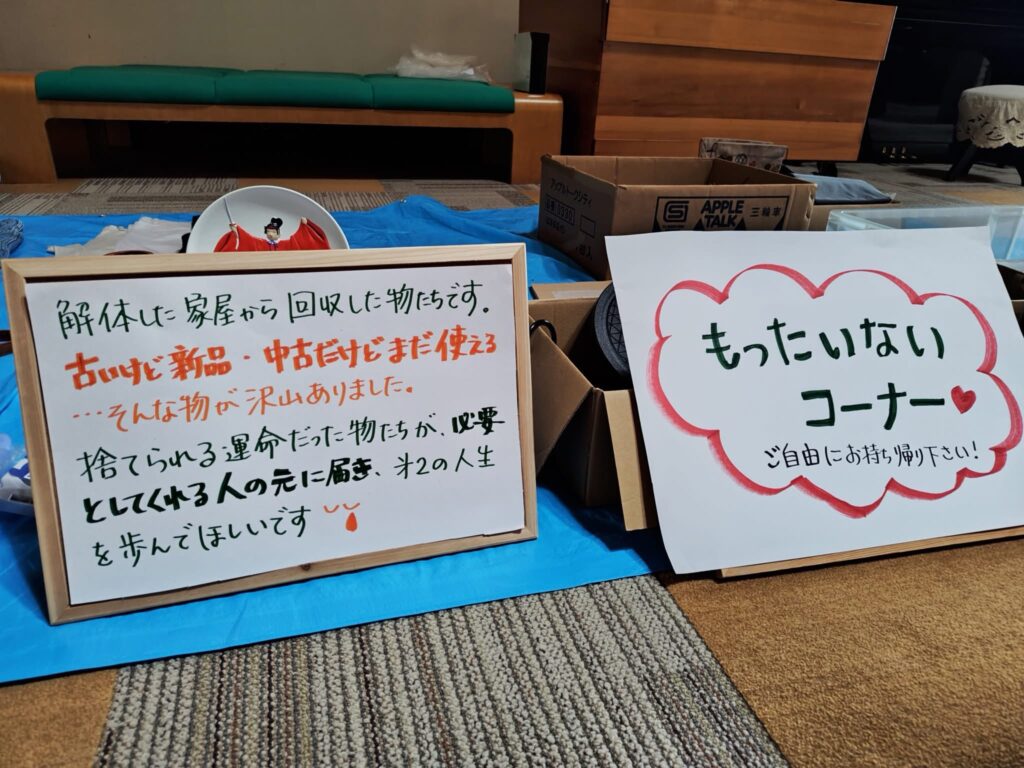 解体した家屋から回収した物たちです。
古いけど新品・中古だけどまだ使える
…そんな物が沢山ありました。
捨てられる運命だった物たちが、必要
としてくれる人の元に届き、㐧2の人生
を歩んでほしいです
もったいない
コーナー
ご自由にお持ち帰り下さい!
APPLE
TALK
三輪車